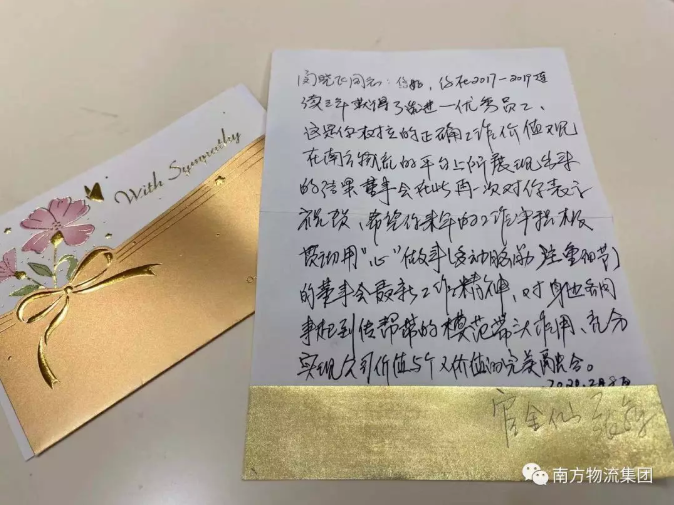 With Sympathy
闫晓飞同志:你好,你在2017-2019连
续三年获得了先进一优秀员工,
这是你树立的正确工作价值观
在南方物流的平台上所展现出来
的结果董事会在此再一次对你表示
祝贺、希望你来年的工作中积极
贯彻用“心”做事(多动脑筋 注重细节)
的董事会最新工作精神,对身边的同
事起到传帮带的模范带头作用、充分
实现公司价值与个人价值的完美融合。
官金仙
南方物流集团